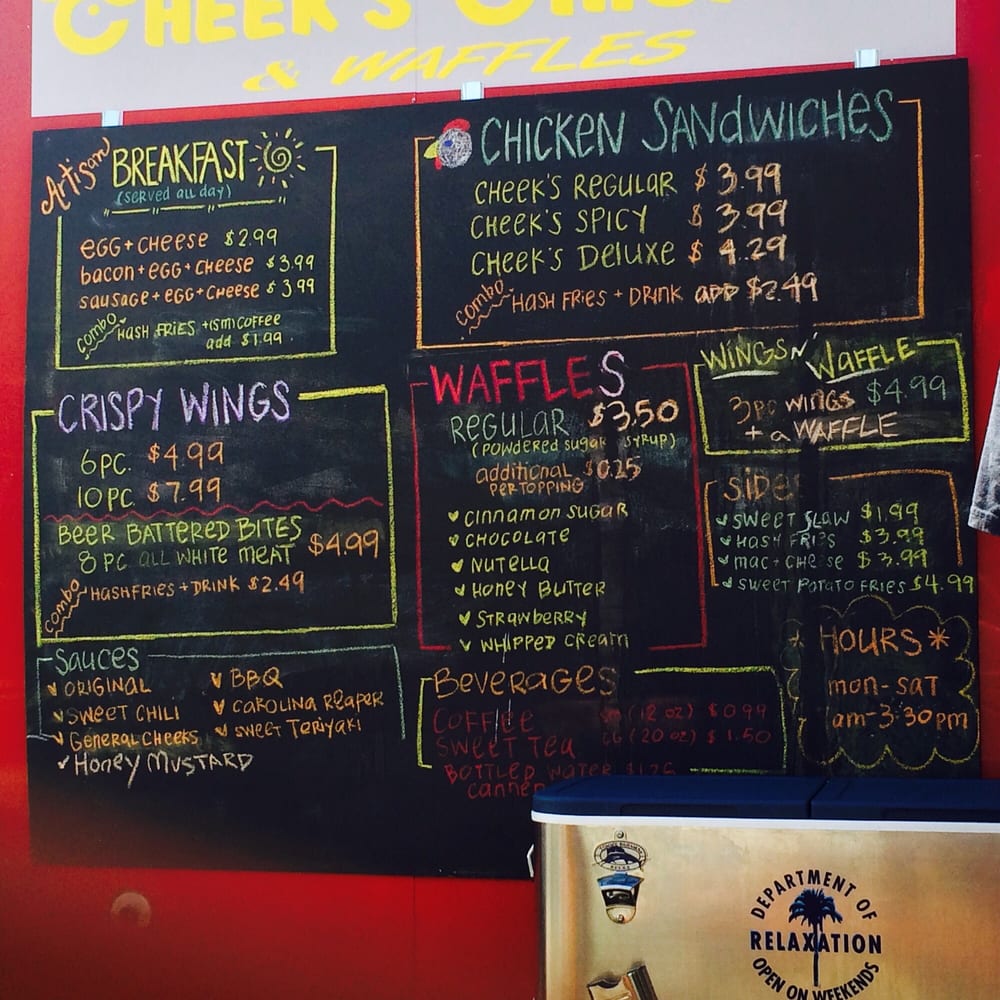 CHEEK'S
& WAFFLES
Artisan
BREAKFAST
(SERVED ALL DAY)
EGG + CHEESE $2.99
bacon + EGG + CHEESE $3.99
sausage + EGG + CHEESE $3.99
combo HASH FRIES + (SM) COFFEE
add $1.99
CHICKEN SANDWICHES
CHEEK'S REGULAR $3.99
CHEEK'S SPICY $3.99
CHEEK'S DELUXE $4.29
combo HASH FRIES + DRINK ADD $2.49
CRISPY WINGS
6 PC. $4.99
10 PC $7.99
BEER BATTERED BITES
8 PC ALL WHITE MEAT $4.99
combo HASH FRIES + DRINK $2.49
WAFFLES
REGULAR $3.50
(POWDERED SUGAR SYRUP)
additional $0.25
PER TOPPING
CINNAMON SUGAR
CHOCOLATE
NUTELLA
HONEY BUTTER
STRAWBERRY
WHIPPED CREAM
WINGS N' WAFFLE
3 PC WINGS $4.99
+ a WAFFLE
SIDES
SWEET SLAW $1.99
HASH FRIES $3.99
MAC + CHEESE $3.99
SWEET POTATO FRIES $4.99
SAUCES
ORIGINAL
SWEET CHILI
GENERAL CHEEKS
HONEY MUSTARD
BBQ
CAROLINA REAPER
SWEET TERIYAKI
BEVERAGES
COFFEE SM (12 OZ) $0.99
SWEET TEA LG (20 OZ) $1.50
BOTTLED WATER $1.25
HOURS*
MON-SAT
am-3:30pm
DEPARTMENT OF
RELAXATION
OPEN ON WEEKENDS